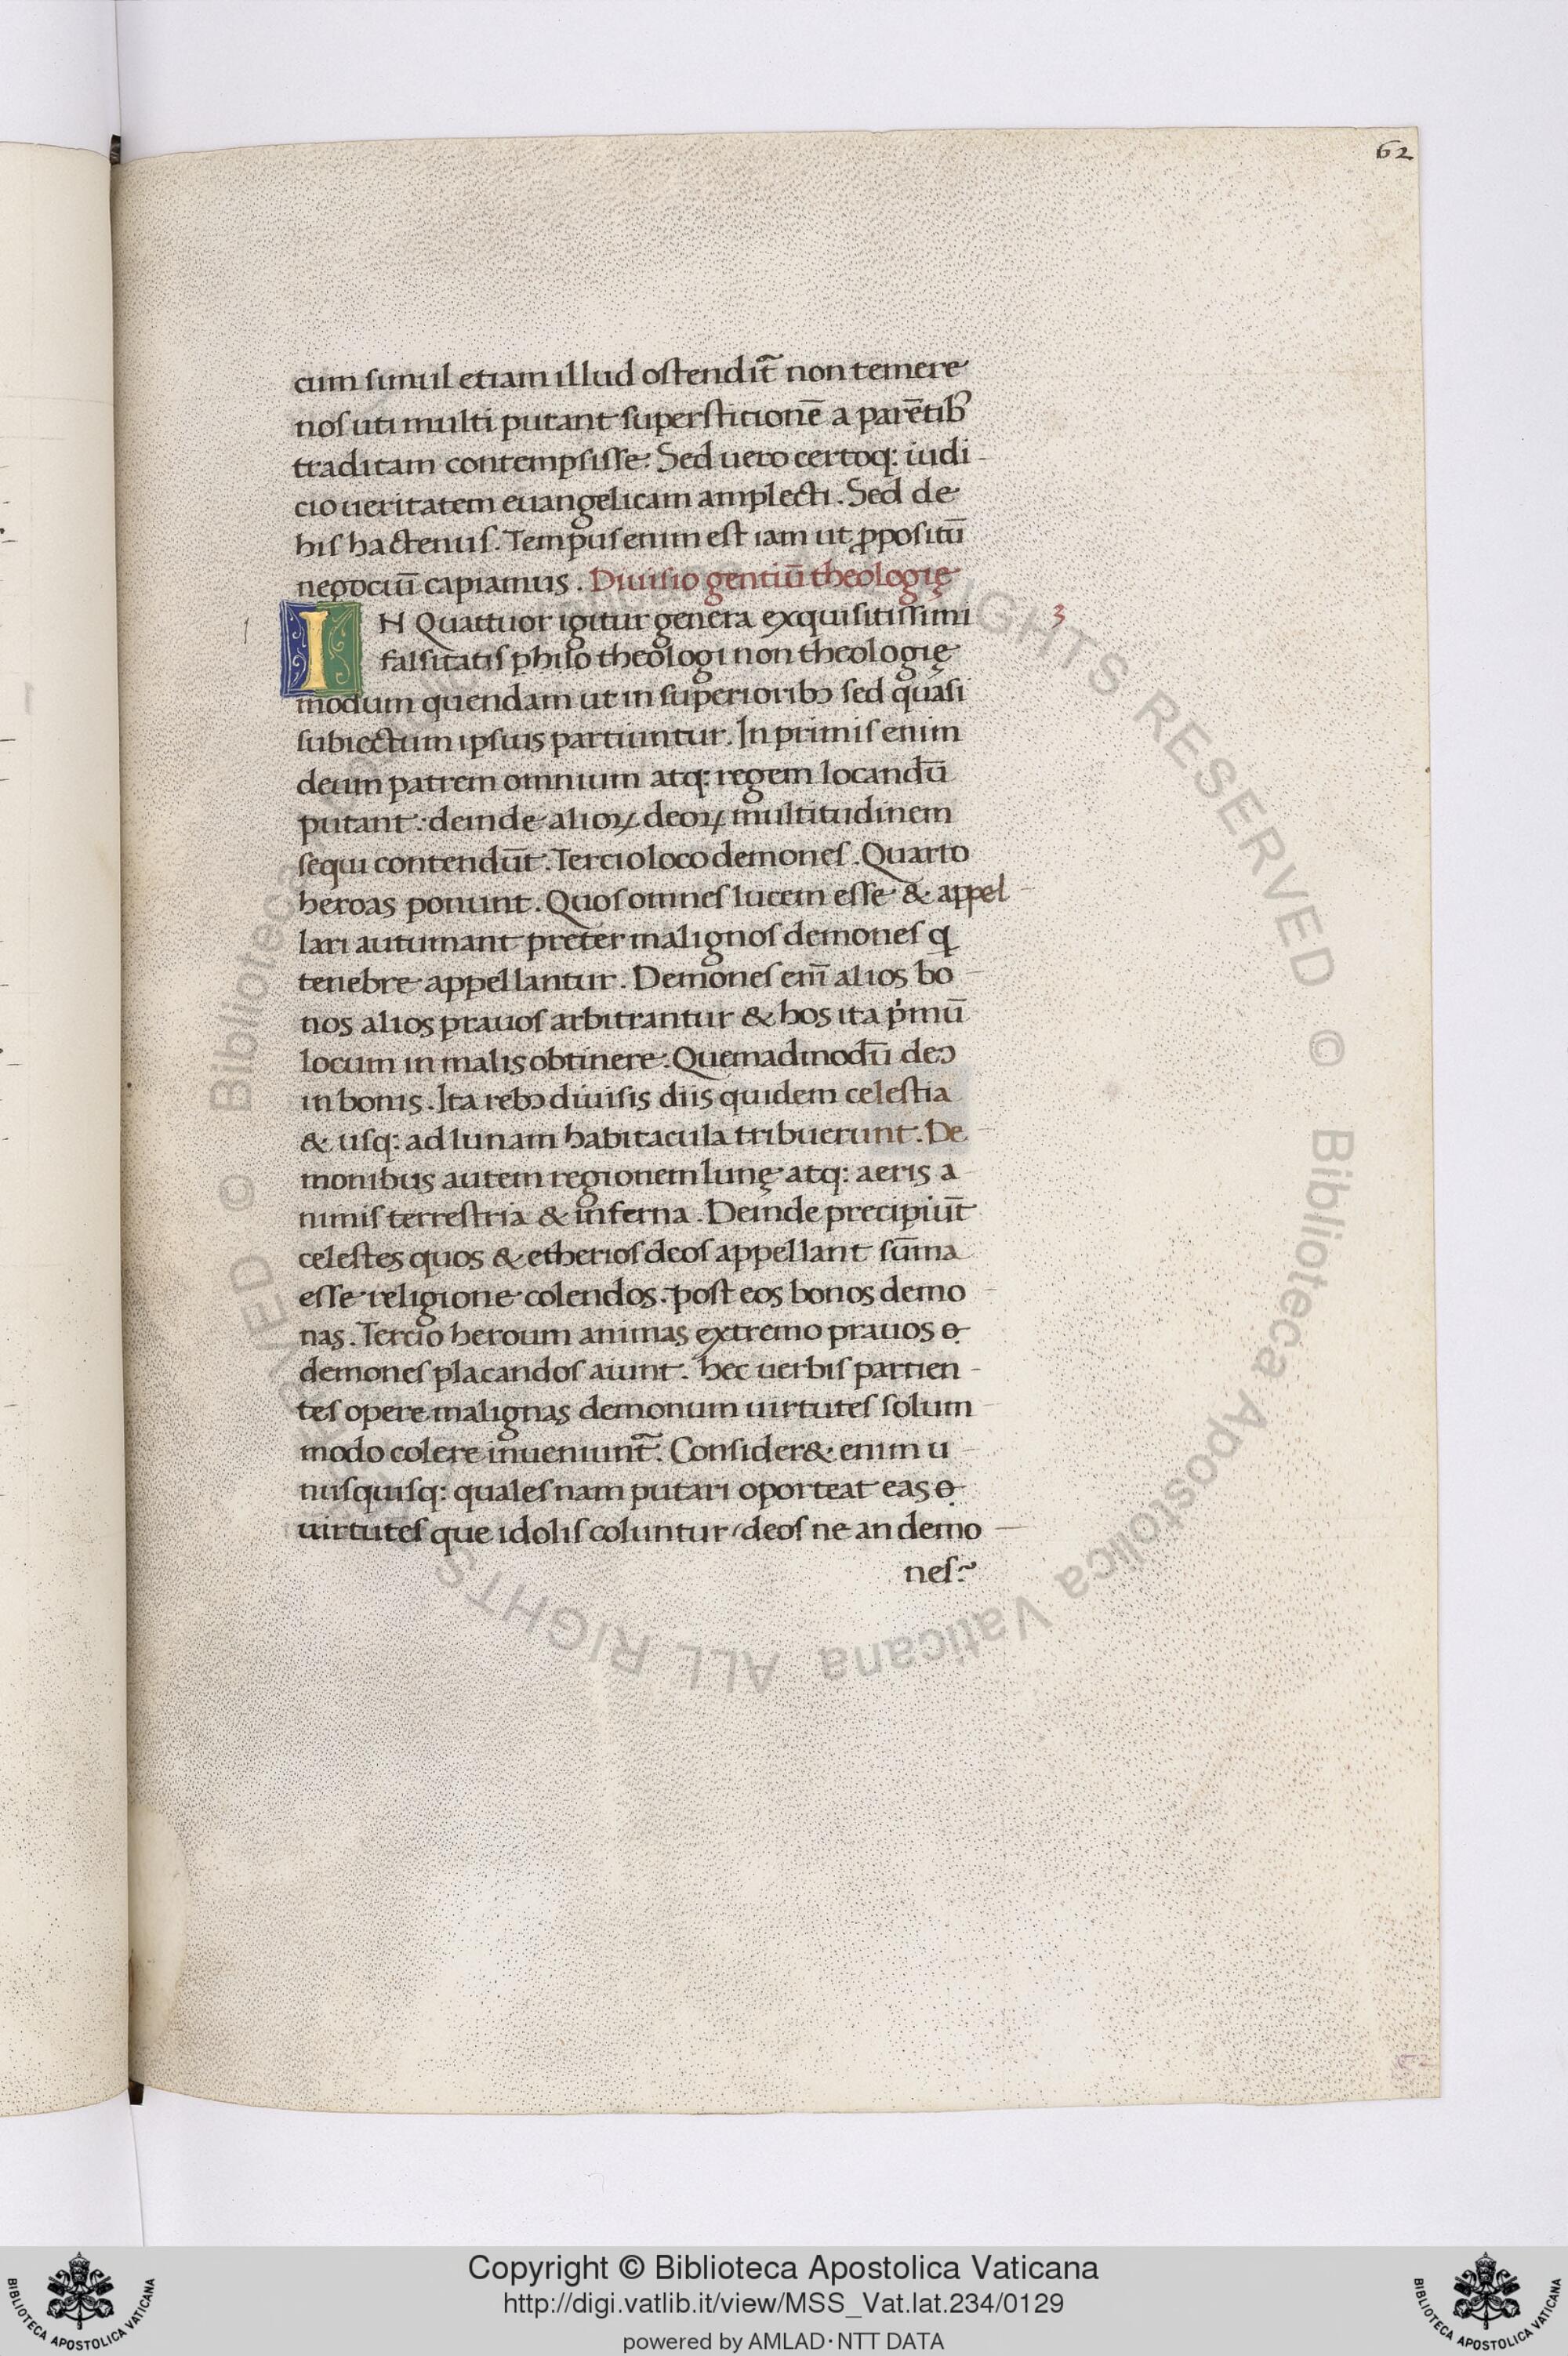 62
cum simul etiam illud ostendit᷉ non temere
nos uti multi putant superstitionē a parētibꝰ
traditam contempsisse. Sed uero certoq: iudi-
cio ueritatem euangelicam amplecti. Sed de
his hactenus. Tempus enim est iam ut ꝓpositū
negociū capiamus. Diuisio gentiū theologię
1 IN Quattuor igitur genera exquisitissimi 3
falsitatis philo theologi non theologię
modum quendam ut in superioribꝫ sed quasi
subiectum ipsius partiuntur. In primis enim
deum patrem omnium atq: regem locandū
putant: deinde alioꝝ deoꝝ multitudinem
sequi contendūt. Tercio loco demones. Quarto
heroas ponunt. Quos omnes lucem esse & appel-
lari autumant preter malignos demones q
tenebre appellantur. Demones em̄ alios bo
nos alios prauos arbitrantur & hos ita pͥmū
locum in malis obtinere. Quemadmodū deꝫ
in bonis. Ita rebꝫ diuisis diis quidem celestia
& usq: ad lunam habitacula tribuerunt. De-
monibus autem regionem lunę atq: aeris a-
nimis terrestria & inferna. Deinde precipiūt
celestes quos & etherios deos appellant sūma
esse religione colendos. post eos bonos demo-
nas. Tercio heroum animas extremo prauos ꝋ
demones placandos aiunt. hec uerbis partien-
tes opere malignas demonum uirtutes solum-
modo colere inueniunt᷉. Consider& enim u-
nusquisq: quales nam putari oporteat eas ꝋ
uirtutes que idolis coluntur/deos ne an demo-
nes?
© Biblioteca Apostolica Vaticana ALL RIGHTS RESERVED © Biblioteca Apostolica Vaticana ALL RIGHTS RESERVED
Copyright © Biblioteca Apostolica Vaticana
http://digi.vatlib.it/view/MSS_Vat.lat.234/0129
powered by AMLAD·NTT DATA
BIBLIOTECA APOSTOLICA VATICANA
BIBLIOTECA APOSTOLICA VATICANA